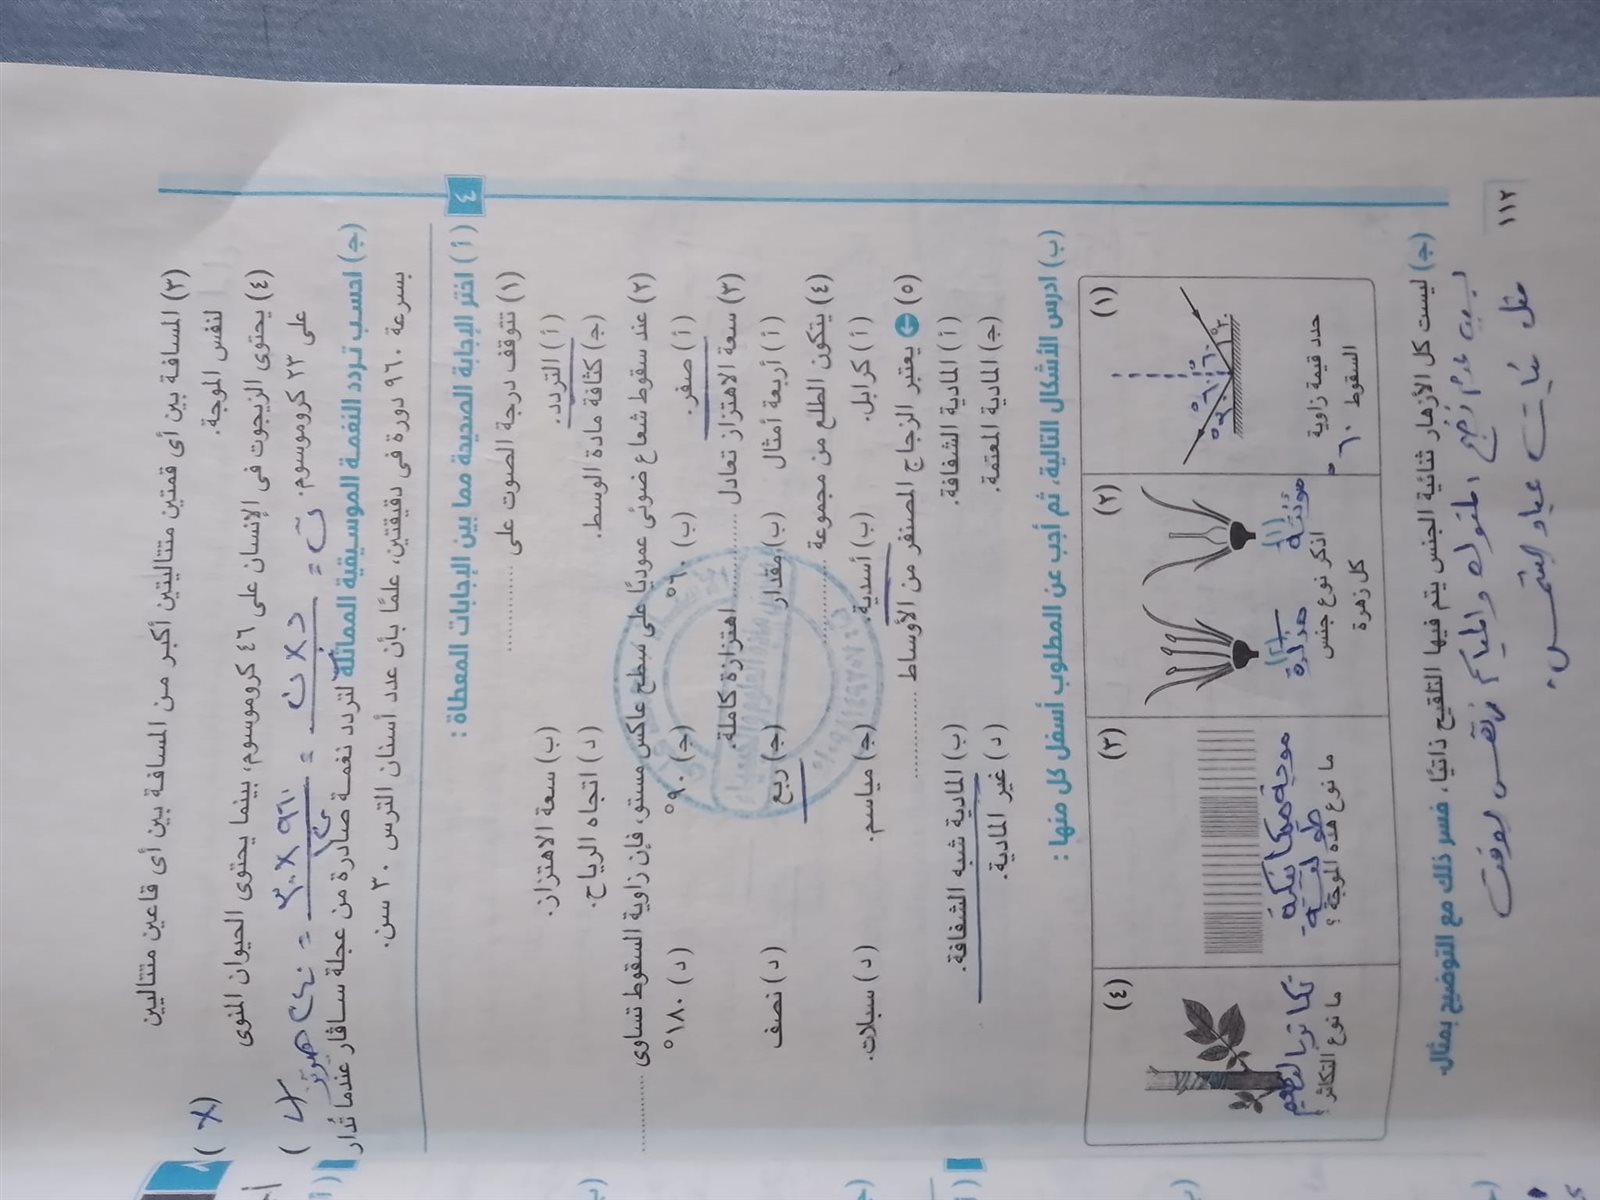 (٣) المسافة بين أى قمتين متتاليتين أكبر من المسافة بين أى قاعين متتاليين
لنفس الموجة. (X)
(٤) يحتوى الزيجوت فى الإنسان على ٤٦ كروموسوم، بينما يحتوى الحيوان المنوى
على ٢٣ كروموسوم. ( )
(ج) احسب تردد النغمة الموسيقية المماثلة لتردد نغمة صادرة من عجلة ساڤار عندما تُدار
بسرعة ٩٦٠ دورة فى دقيقتين، علمًا بأن عدد أسنان الترس ٣٠ سن.
٤
(أ) اختر الإجابة الصحيحة مما بين الإجابات المعطاة :
(١) تتوقف درجة الصوت على ............
(أ) التردد. (ب) سعة الاهتزاز.
(ج) كثافة مادة الوسط. (د) اتجاه الرياح.
(٢) عند سقوط شعاع ضوئى عموديًا على سطح عاكس مستو، فإن زاوية السقوط تساوى ............
(أ) صفر. (ب) ٦٠° (ج) ٩٠° (د) ١٨٠°
(٣) سعة الاهتزاز تعادل ............ اهتزازة كاملة.
(أ) أربعة أمثال (ب) مقدار (ج) ربع (د) نصف
(٤) يتكون الطلع من مجموعة ............
(أ) كرابل. (ب) أسدية. (ج) مياسم. (د) سبلات.
(٥) يعتبر الزجاج المصنفر من الأوساط ............
(أ) المادية الشفافة. (ب) المادية شبه الشفافة.
(ج) المادية المعتمة. (د) غير المادية.
(ب) ادرس الأشكال التالية، ثم أجب عن المطلوب أسفل كل منها :
(١) (٢) (٣) (٤)
حدد قيمة زاوية السقوط ٦٠°
مؤنثة مذكرة
اذكر نوع جنس كل زهرة
موجة ميكانيكية طولية
ما نوع هذه الموجة ؟
تكاثر بالتطعيم
ما نوع التكاثر ؟
(ج) ليست كل الأزهار ثنائية الجنس يتم فيها التلقيح ذاتيًا، فسر ذلك مع التوضيح بمثال.
بسبب عدم نضج المتوك والمياسم نفس الوقت
مثل نبات عباد الشمس.
١١٢